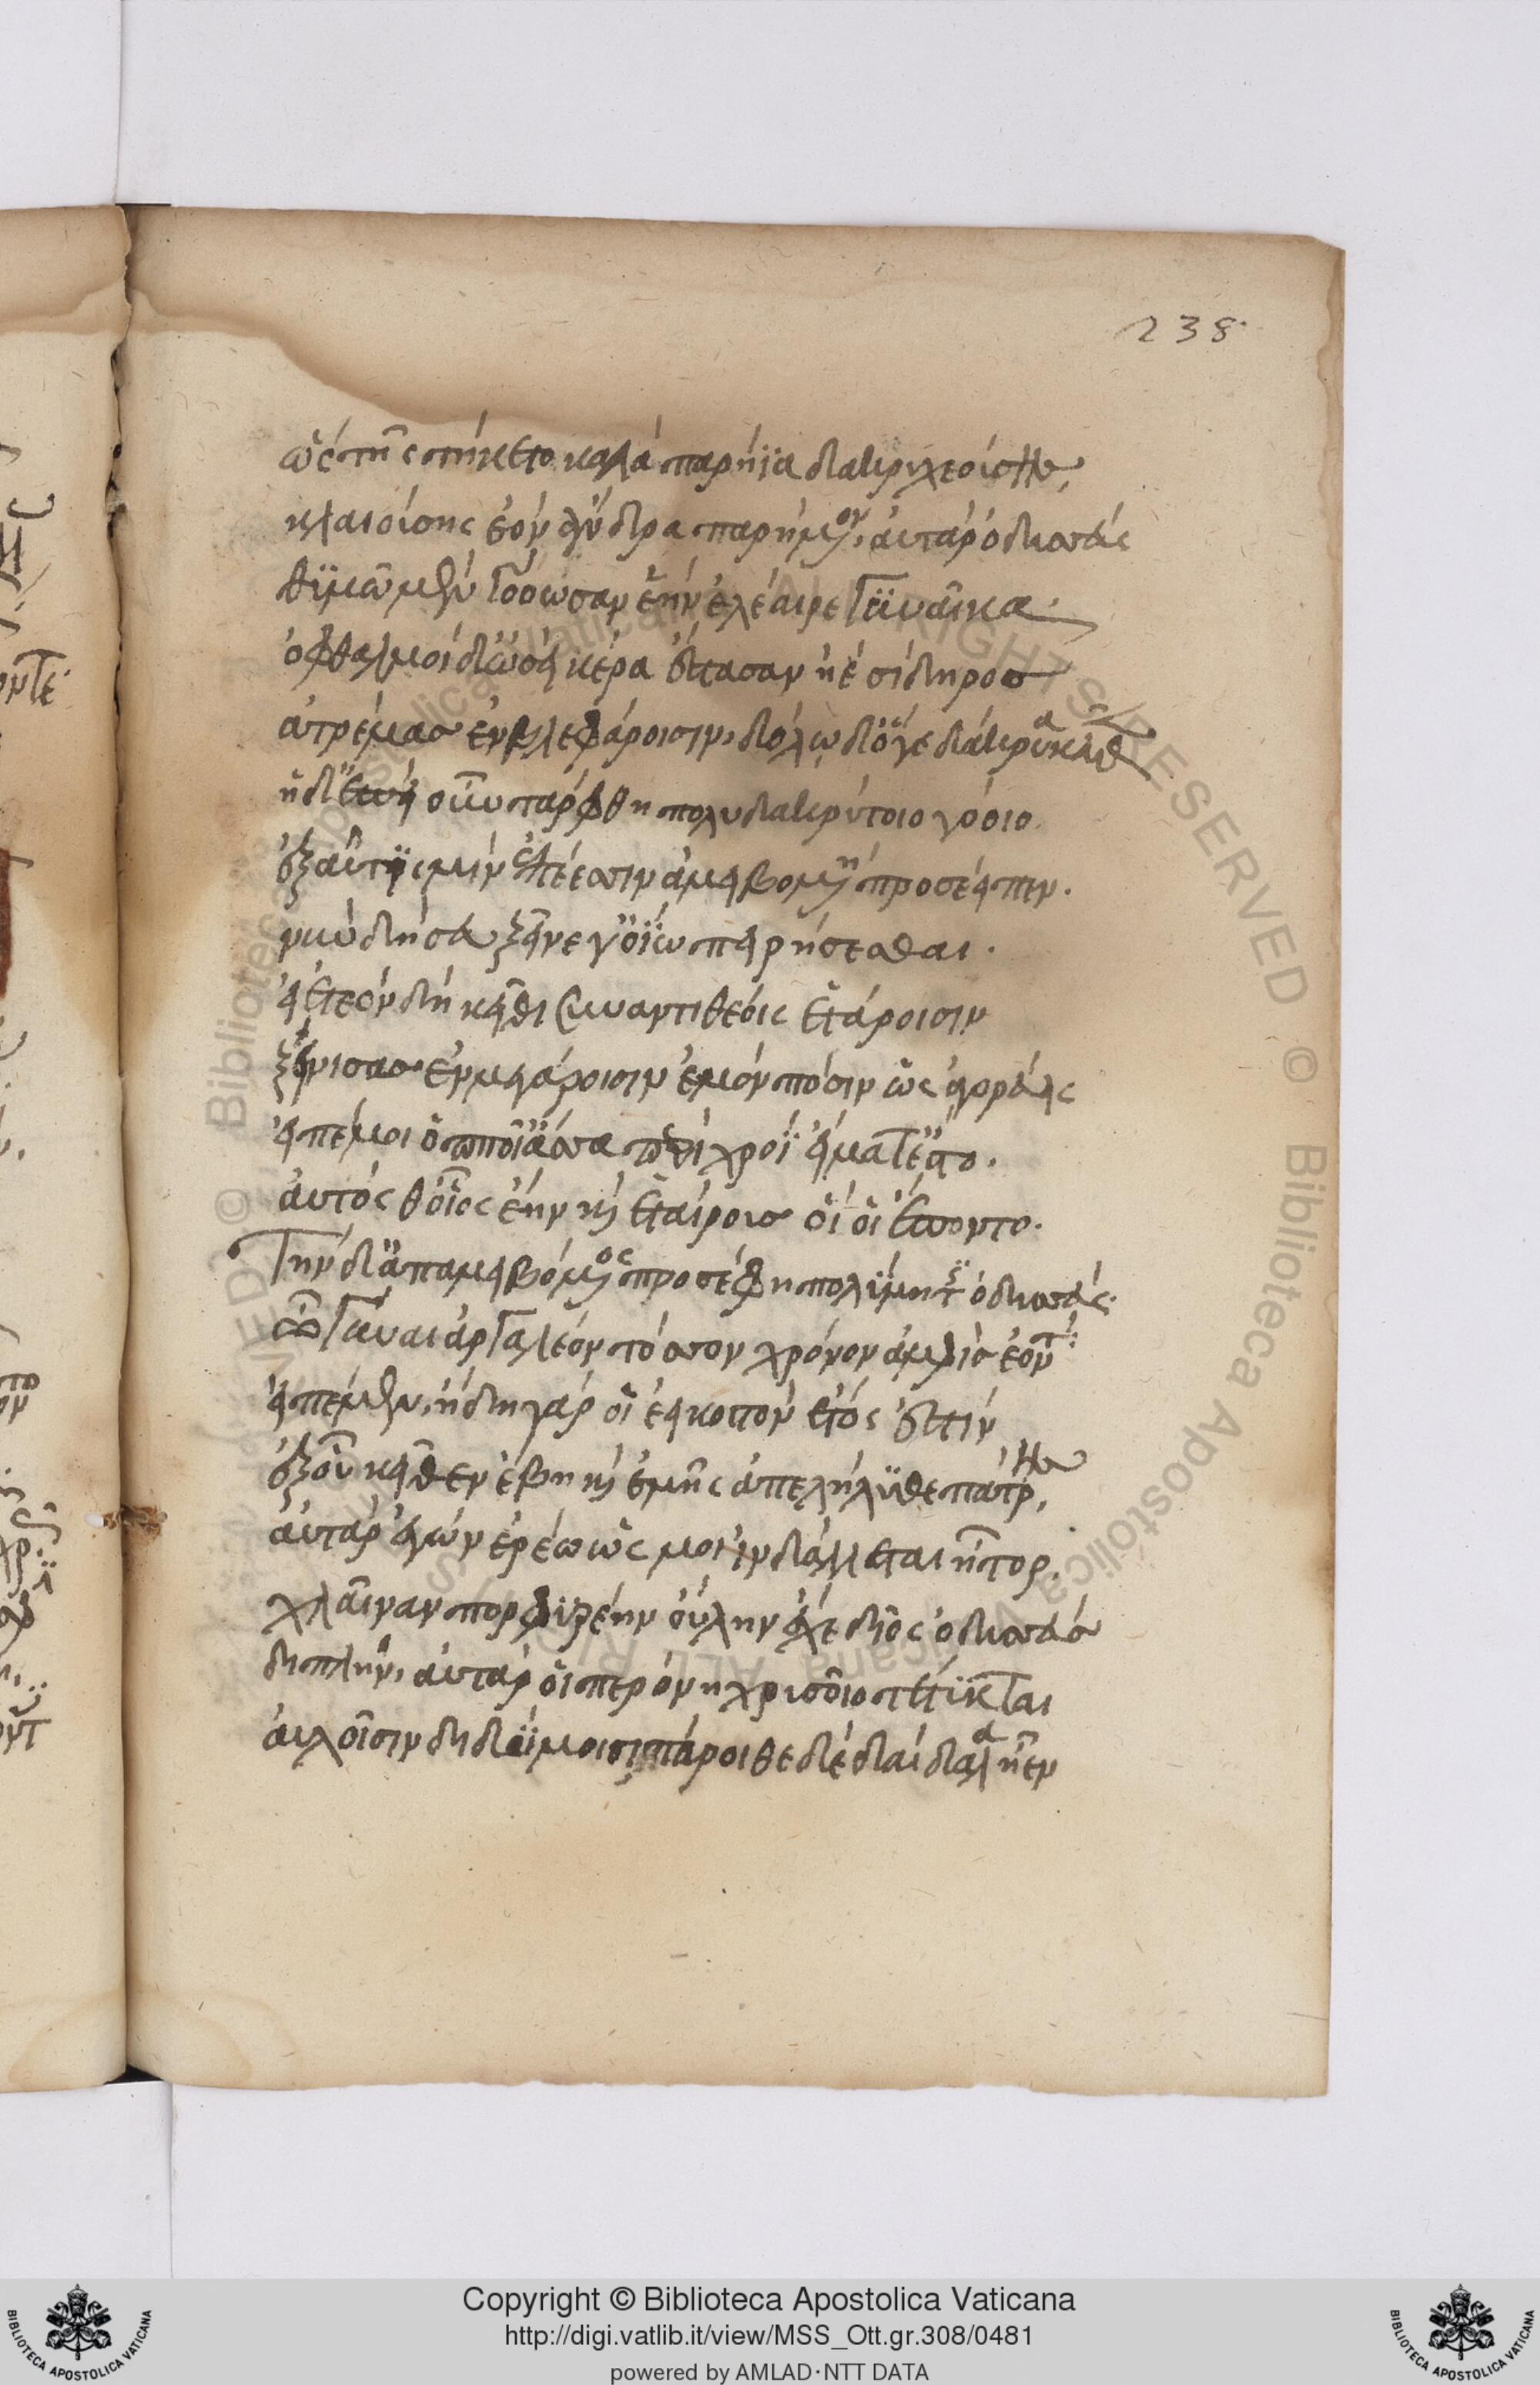 ὣς τῆς τήκετο καλὰ παρήϊα δάκρυ χεούσης,
κλαιούσης ἑὸν ἄνδρα παρήμενον, αὐτὰρ ὀδυσσεὺς
θϋμῶ μὲν γοόωσαν ἑὴν ἐλέαιρε γϋναῖκα·
ὀφθαλμοὶ δ' ὡσεὶ κέρα ἕστασαν ἠὲ σίδηρος
ἀτρέμας ἐν βλεφάροισιν, δόλω δ' ὅγε δάκρυα κεῦθεν
ἡ δ' ἐπεὶ οὖν τάρφθη πολυδακρύτοιο γόοιο
ἐξαῦτϊς μιν ἐπέεσσιν ἀμειβομένη προσέειπεν.
νῦν δή σευ ξεῖνε γ' ὀΐω πειρήσεσθαι.
εἰ ἐτεὸν δὴ κεῖθι σὺν ἀντιθέοις ἑτάροισιν
ξείνισας ἐν μεγάροισιν ἐμὸν πόσιν ὡς ἀγορεύεις
εἰπέ μοι ὁπποῖ' ἅσσα περὶ χροῒ εἵματα ἕστο.
αὐτός θ' οἷος ἔην καὶ ἑταίρους οἵ οἱ ἕποντο.
Τὴν δ' ἀπαμειβόμενος προσέφη πολύμητϊς ὀδυσσεύς·
ὦ γύναι ἀργαλέον τόσσον χρόνον ἀμφὶς ἐόντα
εἰπέμεν, ἤδη γάρ οἱ ἐεικοστὸν ἔτος ἐστὶν
ἐξ οὗ κεῖθεν ἔβη καὶ ἐμῆς ἀπελήλϋθε πάτρης,
αὐτὰρ ἐγὼν ἐρέω ὥς μοι ἰνδάλλεται ἦτορ.
χλαῖναν πορφϋρέην οὔλην ἔχε δῖος ὀδυσσεὺς
διπλῆν, αὐτὰρ οἱ περόνη χρυσοῖο τέτϋκται
αὐλοῖσιν διδύμοισι πάροιθε δὲ δαίδαλα ἦεν
238
Copyright © Biblioteca Apostolica Vaticana
http://digi.vatlib.it/view/MSS_Ott.gr.308/0481
powered by AMLAD·NTT DATA